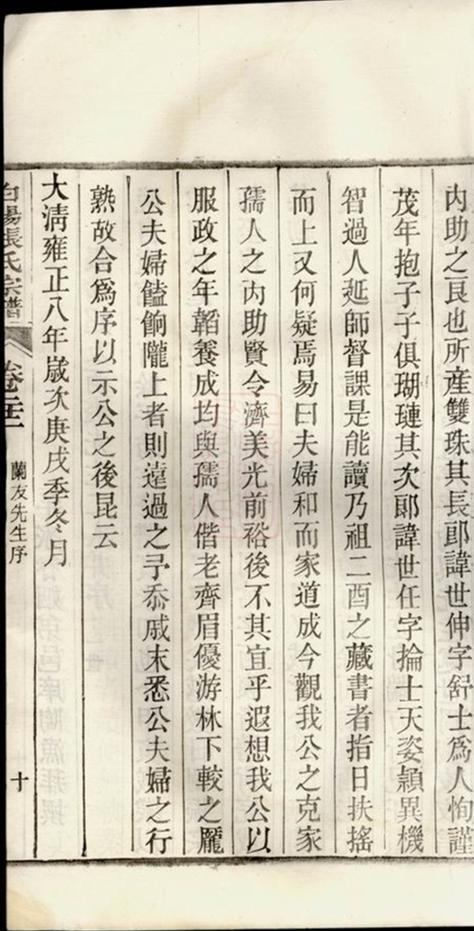 內助之良也所產雙珠其長郎諱世伸字舒士爲人恂謹
茂年抱子子俱瑚璉其次郎諱世任字掄士天姿穎異機
智過人延師督課是能讀乃祖二酉之藏書者指日扶搖
而上又何疑焉易曰夫婦和而家道成今觀我公之克家
孺人之內助賢令濟美光前裕後不其宜乎遐想我公以
服政之年韜養成均與孺人偕老齊眉優游林下較之龐
公夫婦饁餉隴上者則遠過之予忝戚末悉公夫婦之行
熟故合爲序以示公之後昆云
大淸雍正八年歲次庚戌季冬月
張氏宗譜
蘭友先生序
十